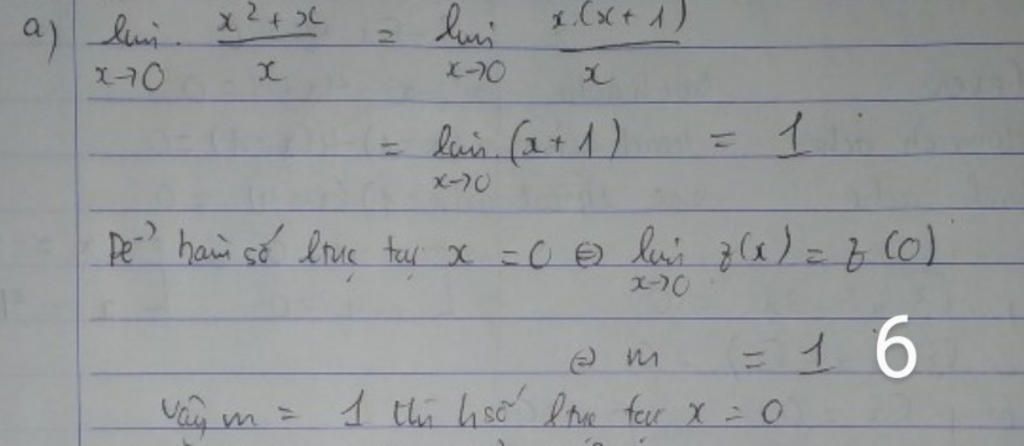 a) lim x→0 x² + x / x = lim x→0 x.(x + 1) / x
= lim x→0 (x + 1) = 1
Để hàm số ltục tại x = 0 ⇔ lim x→0 f(x) = f(0)
⇔ m = 1 6
Vậy m = 1 thì hsố ltục tại x = 0